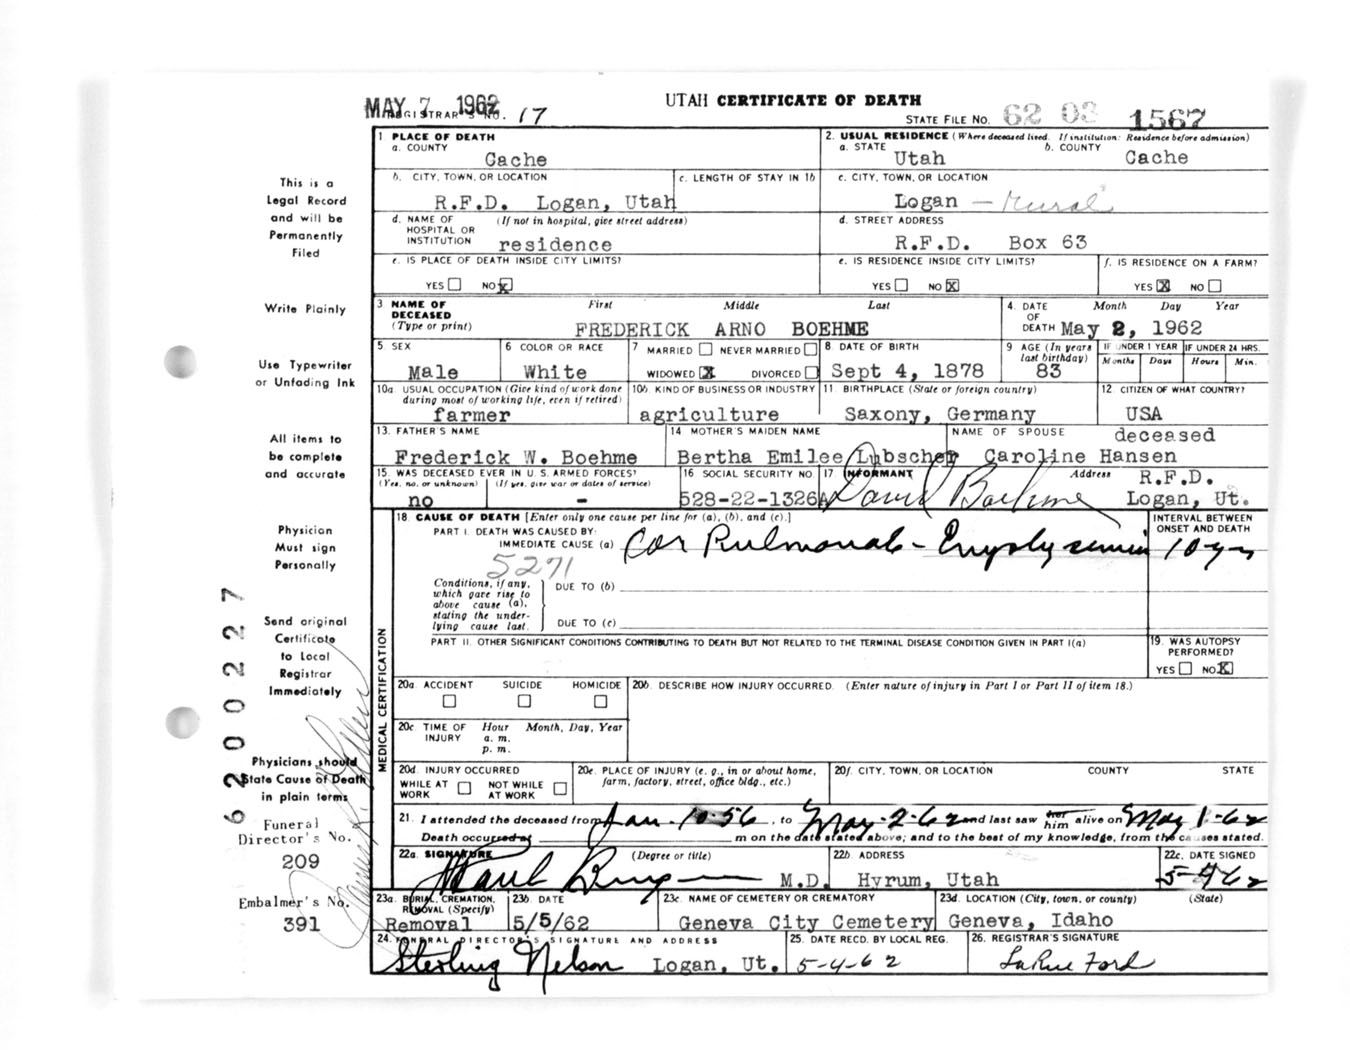 MAY 7 1962
REGISTRAR'S NO. 17
UTAH CERTIFICATE OF DEATH
STATE FILE NO. 62 03 1567
1 PLACE OF DEATH
a. COUNTY
Cache
2. USUAL RESIDENCE (Where deceased lived. If institution: Residence before admission)
a. STATE
Utah
b. COUNTY
Cache
b. CITY, TOWN, OR LOCATION
R.F.D. Logan, Utah
c. LENGTH OF STAY IN 1b
c. CITY, TOWN, OR LOCATION
Logan — Rural
d. NAME OF HOSPITAL OR INSTITUTION
(If not in hospital, give street address)
residence
d. STREET ADDRESS
R.F.D. Box 63
e. IS PLACE OF DEATH INSIDE CITY LIMITS?
YES NO X
e. IS RESIDENCE INSIDE CITY LIMITS?
YES NO X
f. IS RESIDENCE ON A FARM?
YES X NO
3 NAME OF DECEASED
(Type or print)
First Middle Last
FREDERICK ARNO BOEHME
4. DATE OF DEATH
Month Day Year
May 2, 1962
5. SEX
Male
6 COLOR OR RACE
White
7 MARRIED NEVER MARRIED
WIDOWED X DIVORCED
8 DATE OF BIRTH
Sept 4, 1878
9 AGE (In years last birthday)
83
IF UNDER 1 YEAR
Months Days
IF UNDER 24 HRS.
Hours Min.
10a USUAL OCCUPATION (Give kind of work done during most of working life, even if retired)
farmer
10b. KIND OF BUSINESS OR INDUSTRY
agriculture
11. BIRTHPLACE (State or foreign country)
Saxony, Germany
12. CITIZEN OF WHAT COUNTRY?
USA
13. FATHER'S NAME
Frederick W. Boehme
14 MOTHER'S MAIDEN NAME
Bertha Emilee Lubscher
NAME OF SPOUSE
deceased
Caroline Hansen
15. WAS DECEASED EVER IN U. S. ARMED FORCES?
(Yes, no, or unknown) (If yes, give war or dates of service)
no -
16 SOCIAL SECURITY NO.
528-22-1326A
17. INFORMANT
David Boehme
Address
R.F.D.
Logan, Ut.
18. CAUSE OF DEATH [Enter only one cause per line for (a), (b), and (c).]
INTERVAL BETWEEN ONSET AND DEATH
PART I. DEATH WAS CAUSED BY:
IMMEDIATE CAUSE (a) Cor Pulmonale - Emphysemia 10 yrs
5271
Conditions, if any, which gave rise to above cause (a), stating the underlying cause last.
DUE TO (b)
DUE TO (c)
PART II. OTHER SIGNIFICANT CONDITIONS CONTRIBUTING TO DEATH BUT NOT RELATED TO THE TERMINAL DISEASE CONDITION GIVEN IN PART I(a)
19. WAS AUTOPSY PERFORMED?
YES NO X
20a. ACCIDENT SUICIDE HOMICIDE
20b. DESCRIBE HOW INJURY OCCURRED. (Enter nature of injury in Part I or Part II of item 18.)
20c. TIME OF INJURY
Hour Month, Day, Year
a. m.
p. m.
20d. INJURY OCCURRED
WHILE AT WORK NOT WHILE AT WORK
20e. PLACE OF INJURY (e. g., in or about home, farm, factory, street, office bldg., etc.)
20f. CITY, TOWN, OR LOCATION COUNTY STATE
MEDICAL CERTIFICATION
21. I attended the deceased from Jan. 10-56, to May-2-62 and last saw her him alive on May 1-62
Death occurred at m on the date stated above; and to the best of my knowledge, from the causes stated.
22a. SIGNATURE (Degree or title)
M.D.
22b. ADDRESS
Hyrum, Utah
22c. DATE SIGNED
5-4-62
23a. BURIAL, CREMATION, REMOVAL (Specify)
Removal
23b. DATE
5/5/62
23c. NAME OF CEMETERY OR CREMATORY
Geneva City Cemetery
23d. LOCATION (City, town, or county) (State)
Geneva, Idaho
24. FUNERAL DIRECTOR'S SIGNATURE AND ADDRESS
Sterling Nelson Logan, Ut.
25. DATE RECD. BY LOCAL REG.
5-4-62
26. REGISTRAR'S SIGNATURE
LaRue Ford
This is a
Legal Record
and will be
Permanently
Filed
Write Plainly
Use Typewriter
or Unfading Ink
All items to
be complete
and accurate
Physician
Must sign
Personally
Send original
Certificate
to Local
Registrar
Immediately
Physicians should
State Cause of Death
in plain terms
Funeral
Director's No.
209
Embalmer's No.
391
6200227